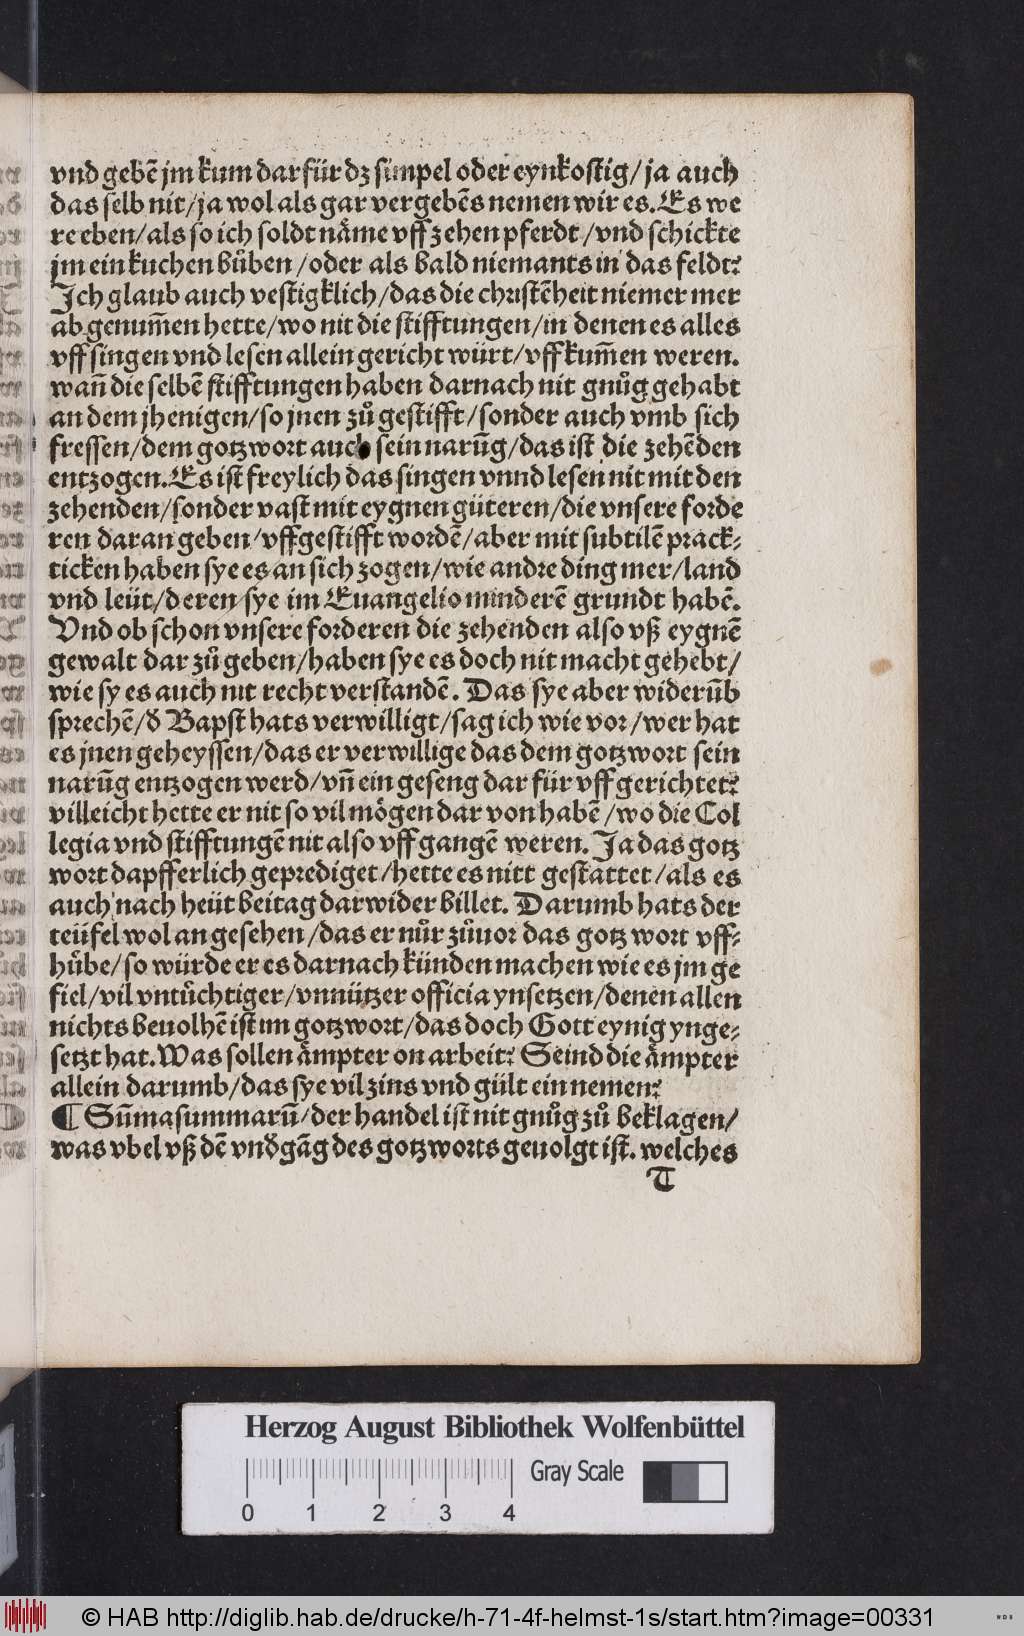 vnd gebẽ jm kum dar für dz simpel oder eynkostig/ ja auch
das selb nit/ ja wol als gar vergebẽs nemen wir es. Es we
re eben/ als so ich soldt nåme vff zehen pferdt/ vnd schickte
jm ein kuchen bůben/ oder als bald niemants in das feldt?
Ich glaub auch vestigklich/ das die christẽheit niemer mer
ab genum̃en hette/ wo nit die stifftungen/ in denen es alles
vff singen vnd lesen allein gericht würt/ vff kum̃en weren.
wañ die selbẽ stifftungen haben darnach nit gnůg gehabt
an dem jhenigen/ so jnen zů gestifft/ sonder auch vmb sich
fressen/ dem gotzwort auch sein narũg/ das ist die zehẽden
entzogen. Es ist freylich das singen vnnd lesen nit mit den
zehenden/ sonder vast mit eygnen güteren/ die vnsere forde
ren daran geben/ vffgestifft wordẽ/ aber mit subtilẽ prack⸗
ticken haben sye es an sich zogen/ wie andre ding mer/ land
vnd leüt/ deren sye im Euangelio minderẽ grundt habẽ.
Vnd ob schon vnsere forderen die zehenden also vß eygnẽ
gewalt dar zů geben/ haben sye es doch nit macht gehebt/
wie sy es auch nit recht verstandẽ. Das sye aber widerũb
sprechẽ/ ð Bapst hats verwilligt/ sag ich wie vor/ wer hat
es jnen geheyssen/ das er verwillige das dem gotzwort sein
narũg entzogen werd/ vñ ein geseng dar für vff gerichtet?
villeicht hette er nit so vil mögen dar von habẽ/ wo die Col
legia vnd stifftungẽ nit also vff gangẽ weren. Ja das gotz
wort dapfferlich geprediget/ hette es nitt gestattet/ als es
auch nach heüt bei tag darwider billet. Darumb hats der
teüfel wol an gesehen/ das er nůr zůuor das gotz wort vff⸗
hůbe/ so würde er es darnach künden machen wie es jm ge
fiel/ vil vntůchtiger/ vnnützer officia ynsetzen/ denen allen
nichts beuolhẽ ist im gotzwort/ das doch Gott eynig ynge⸗
setzt hat. Was sollen åmpter on arbeit? Seind die åmpter
allein darumb/ das sye vil zins vnd gült ein nemen?
¶ Sum̃a summarũ/ der handel ist nit gnůg zů beklagen/
was vbel vß dẽ vnðgãg des gotzworts geuolgt ist. welches
T
Herzog August Bibliothek Wolfenbüttel
Gray Scale
0 1 2 3 4
© HAB http://diglib.hab.de/drucke/h-71-4f-helmst-1s/start.htm?image=00331